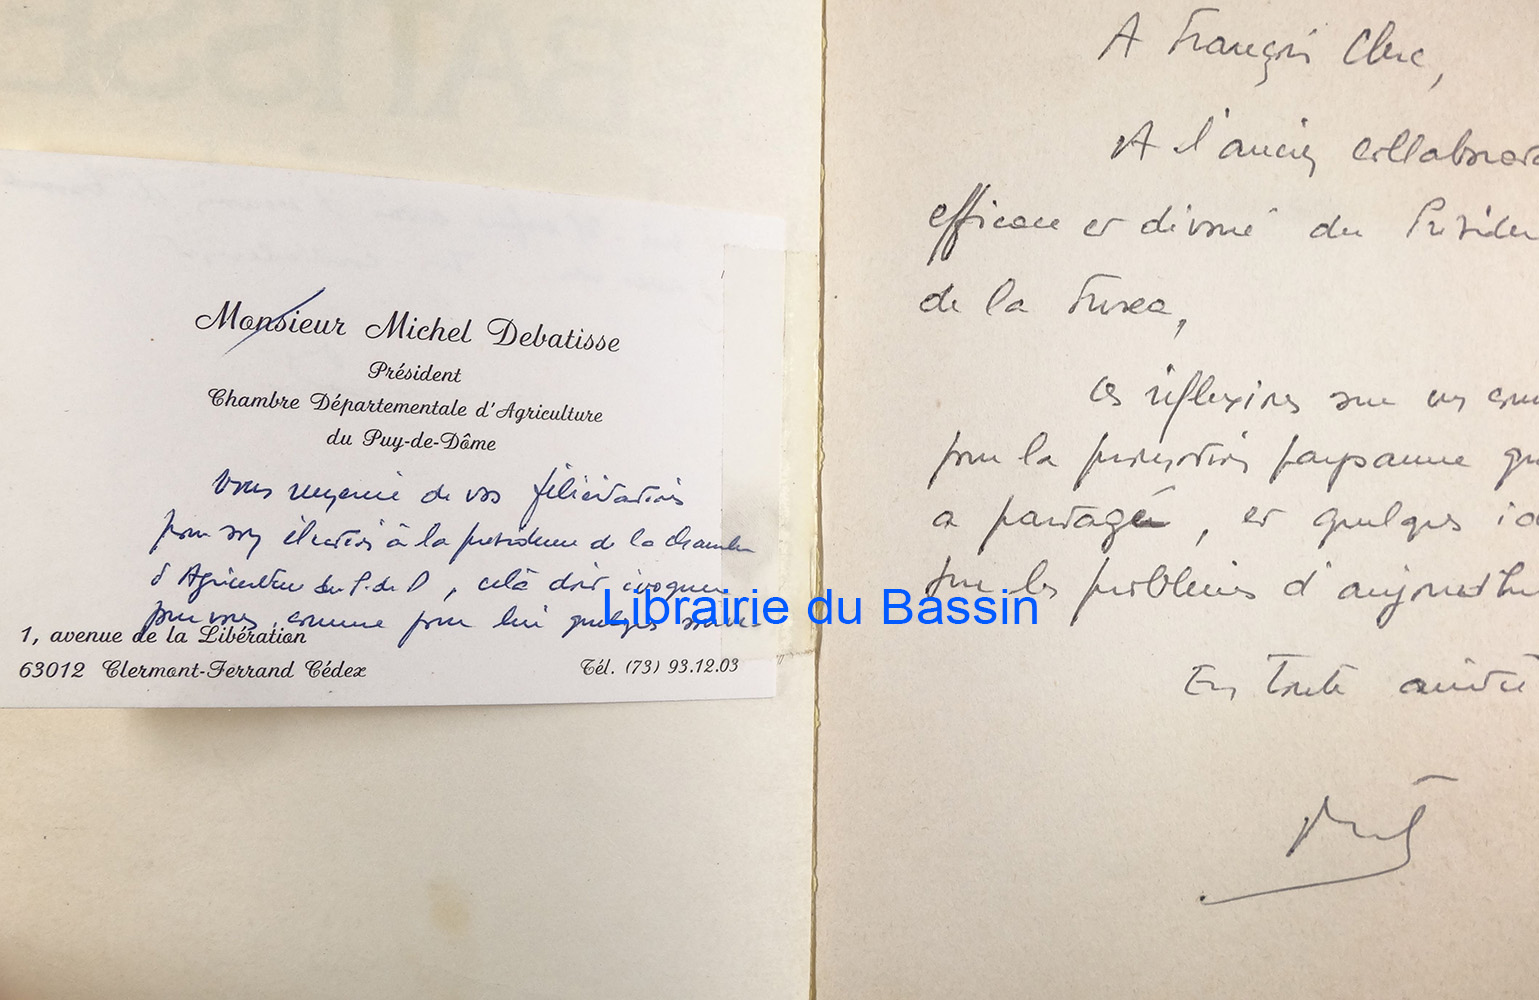 ATISSE
Monsieur Michel Debatisse
Président
Chambre Départementale d'Agriculture
du Puy-de-Dôme
Vous remercie de vos félicitations
pour son élection à la présidence de la chambre
d'Agriculture du P. de D, cela doit évoquer
pour vous comme pour lui quelques souve-
1, avenue de la Libération
63012 Clermont-Ferrand Cédex
Tél. (73) 93.12.03
A François Clerc,
A l'ancien collabora
efficace et dévoué du Présiden
de la Fnsea,
Ces réflexions sur un
pour la promotion paysanne qu
a partagé, et quelques id
sur les problèmes d'aujourd'hu
En toute amitié
Librairie du Bassin